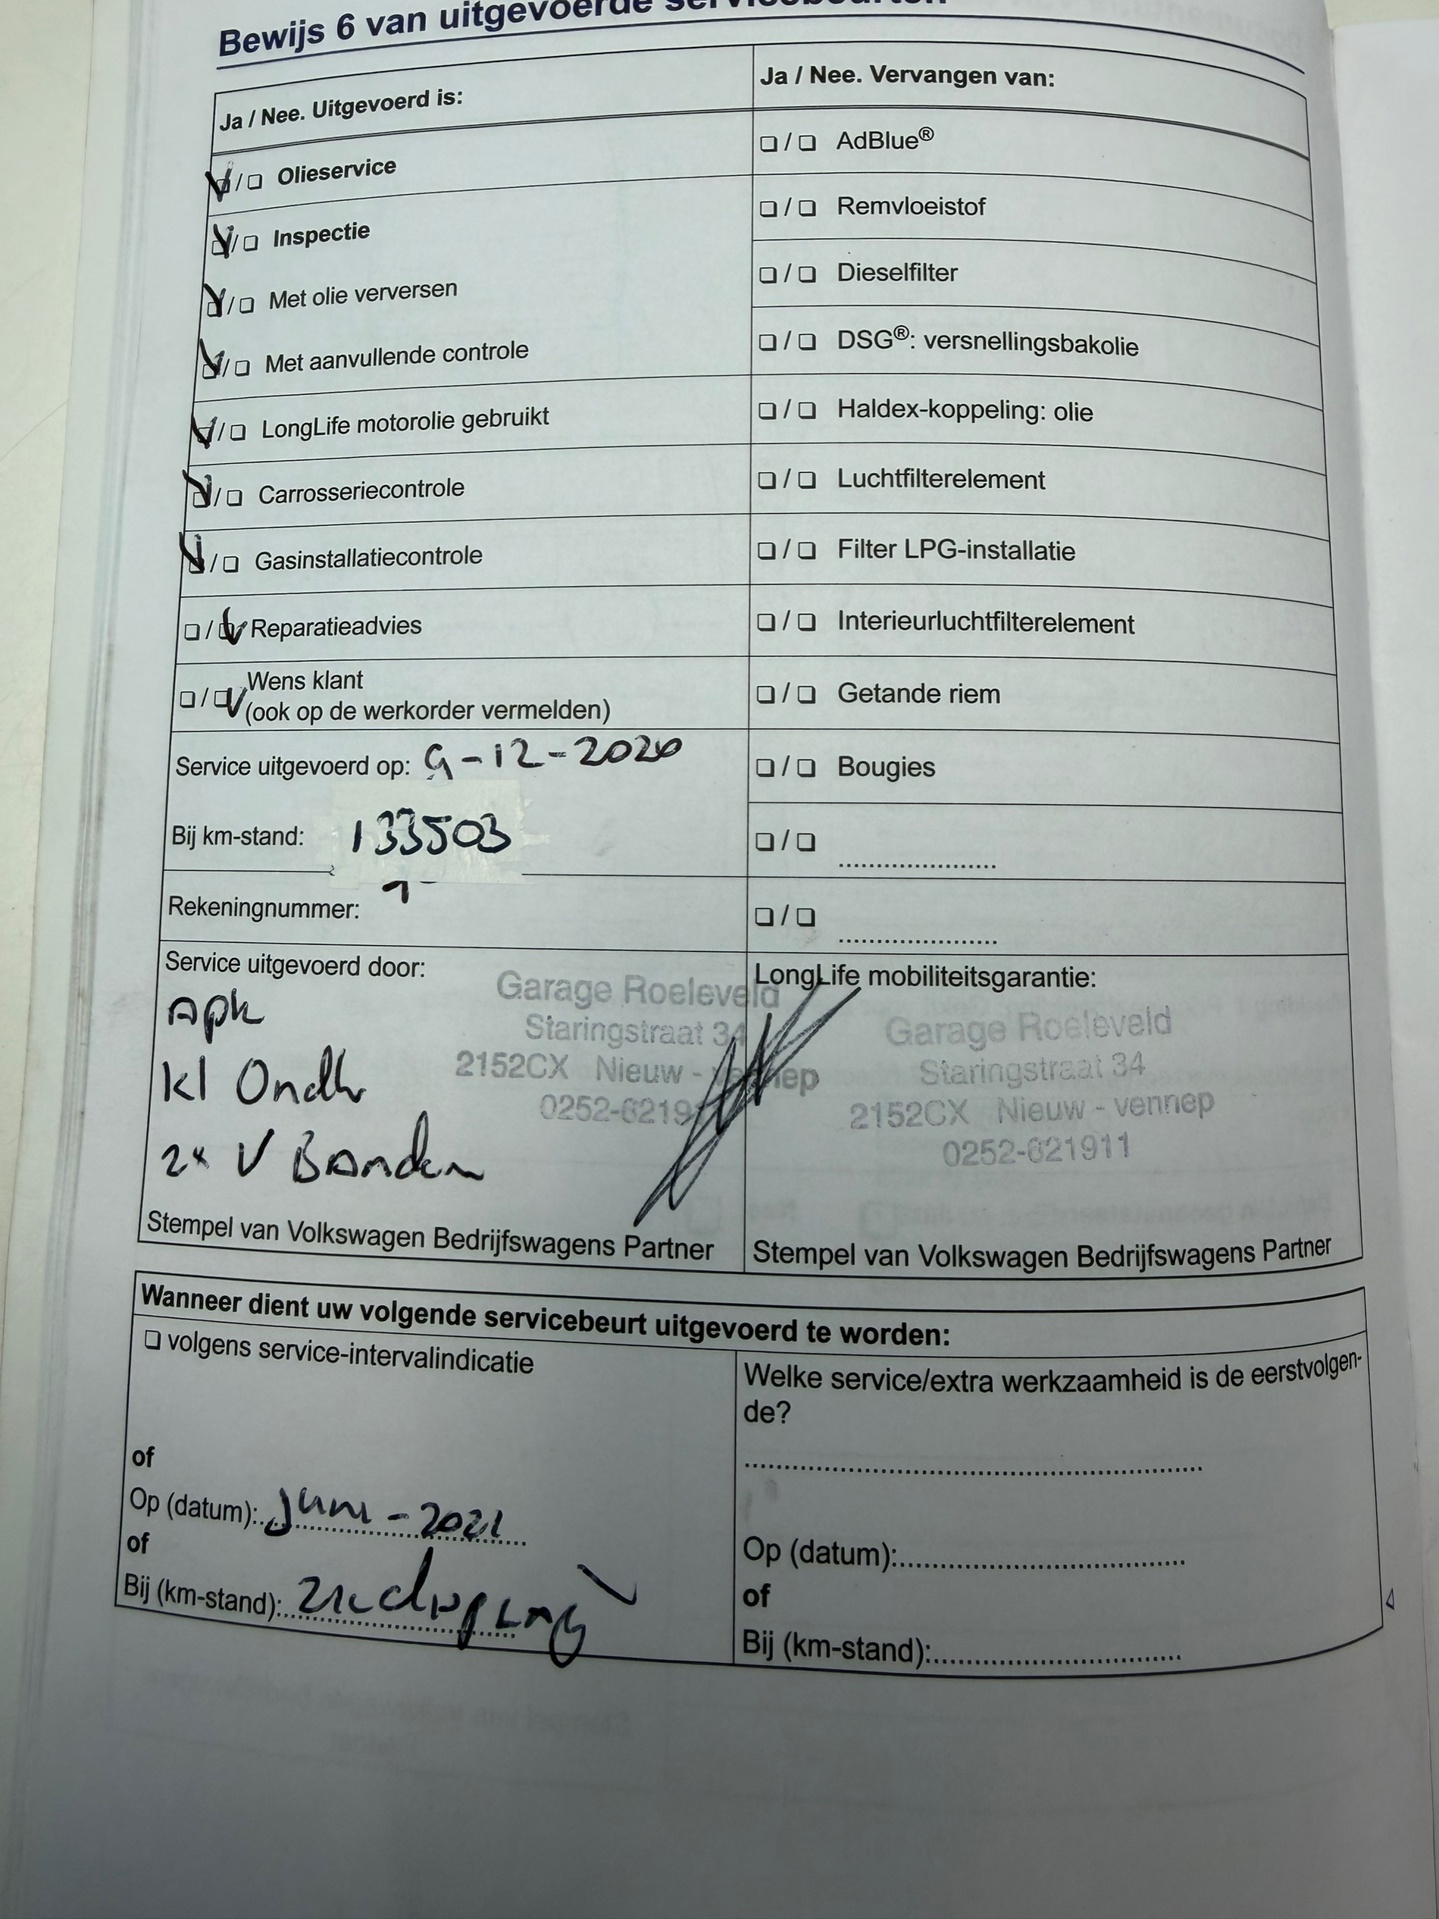 Bewijs 6 van uitgevoerde servicebeurten
Ja / Nee. Uitgevoerd is:
☑/❏ Olieservice
☑/❏ Inspectie
☑/❏ Met olie verversen
☑/❏ Met aanvullende controle
☑/❏ LongLife motorolie gebruikt
☑/❏ Carrosseriecontrole
☑/❏ Gasinstallatiecontrole
❏/☑ Reparatieadvies
❏/☑ Wens klant
(ook op de werkorder vermelden)
Service uitgevoerd op: 9-12-2020
Bij km-stand: 133503
Rekeningnummer:
Service uitgevoerd door:
Apk
kl Ondh
2x V Banden
Garage Roeleveld
Staringstraat 34
2152CX Nieuw - vennep
0252-6219
Stempel van Volkswagen Bedrijfswagens Partner
Ja / Nee. Vervangen van:
❏/❏ AdBlue®
❏/❏ Remvloeistof
❏/❏ Dieselfilter
❏/❏ DSG®: versnellingsbakolie
❏/❏ Haldex-koppeling: olie
❏/❏ Luchtfilterelement
❏/❏ Filter LPG-installatie
❏/❏ Interieurluchtfilterelement
❏/❏ Getande riem
❏/❏ Bougies
❏/❏ ......................
❏/❏ ......................
LongLife mobiliteitsgarantie:
Garage Roeleveld
Staringstraat 34
2152CX Nieuw - vennep
0252-621911
Stempel van Volkswagen Bedrijfswagens Partner
Wanneer dient uw volgende servicebeurt uitgevoerd te worden:
❏ volgens service-intervalindicatie
of
Op (datum): Juni - 2021
of
Bij (km-stand):
Welke service/extra werkzaamheid is de eerstvolgen-
de?
Op (datum):
of
Bij (km-stand):